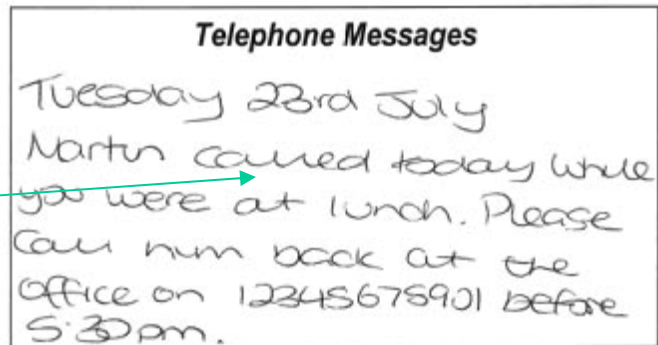 Telephone Messages
Tuesday 23rd July
Martin called today while
you were at lunch. Please
call him back at the
office on 12345675901 before
5.30pm.